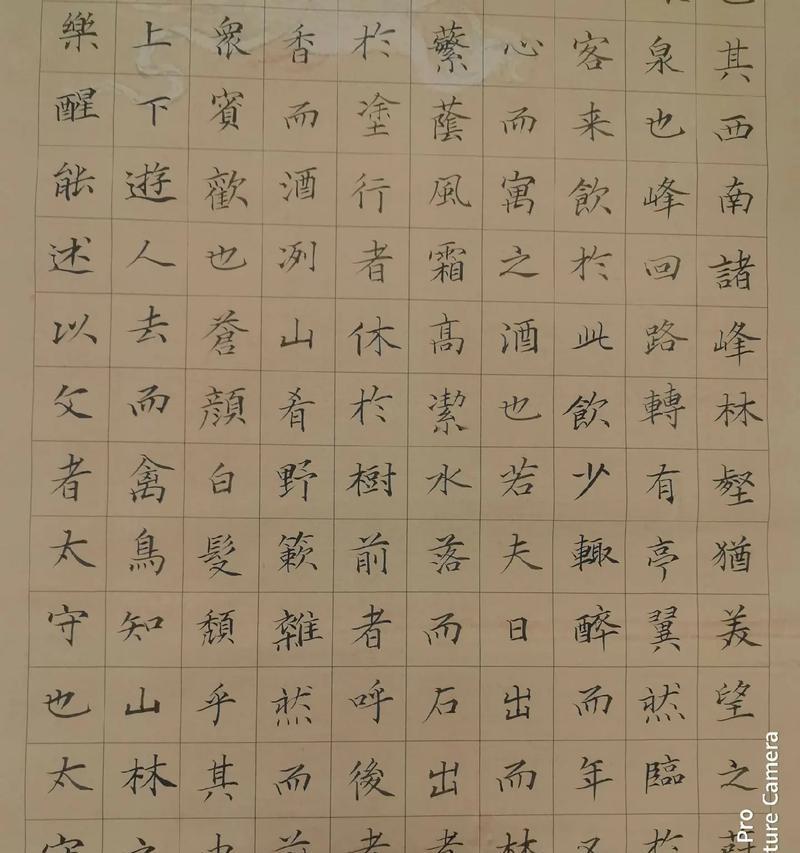 也其西南諸峰林壑猶美望之蔚
泉也峰回路轉有亭翼然臨於
客来飲於此飲少輒醉而年又
心而寓之酒也若夫日出而林
蘩蔭風霜高潔水落而石出者
於塗行者休於樹前者呼後者
香而酒冽山肴野簌雜然而前
衆賓歡也蒼顔白髮頹乎其中
上下遊人去而禽鳥知山林之
樂醒能述以文者太守也太守
Pro
ture Camera